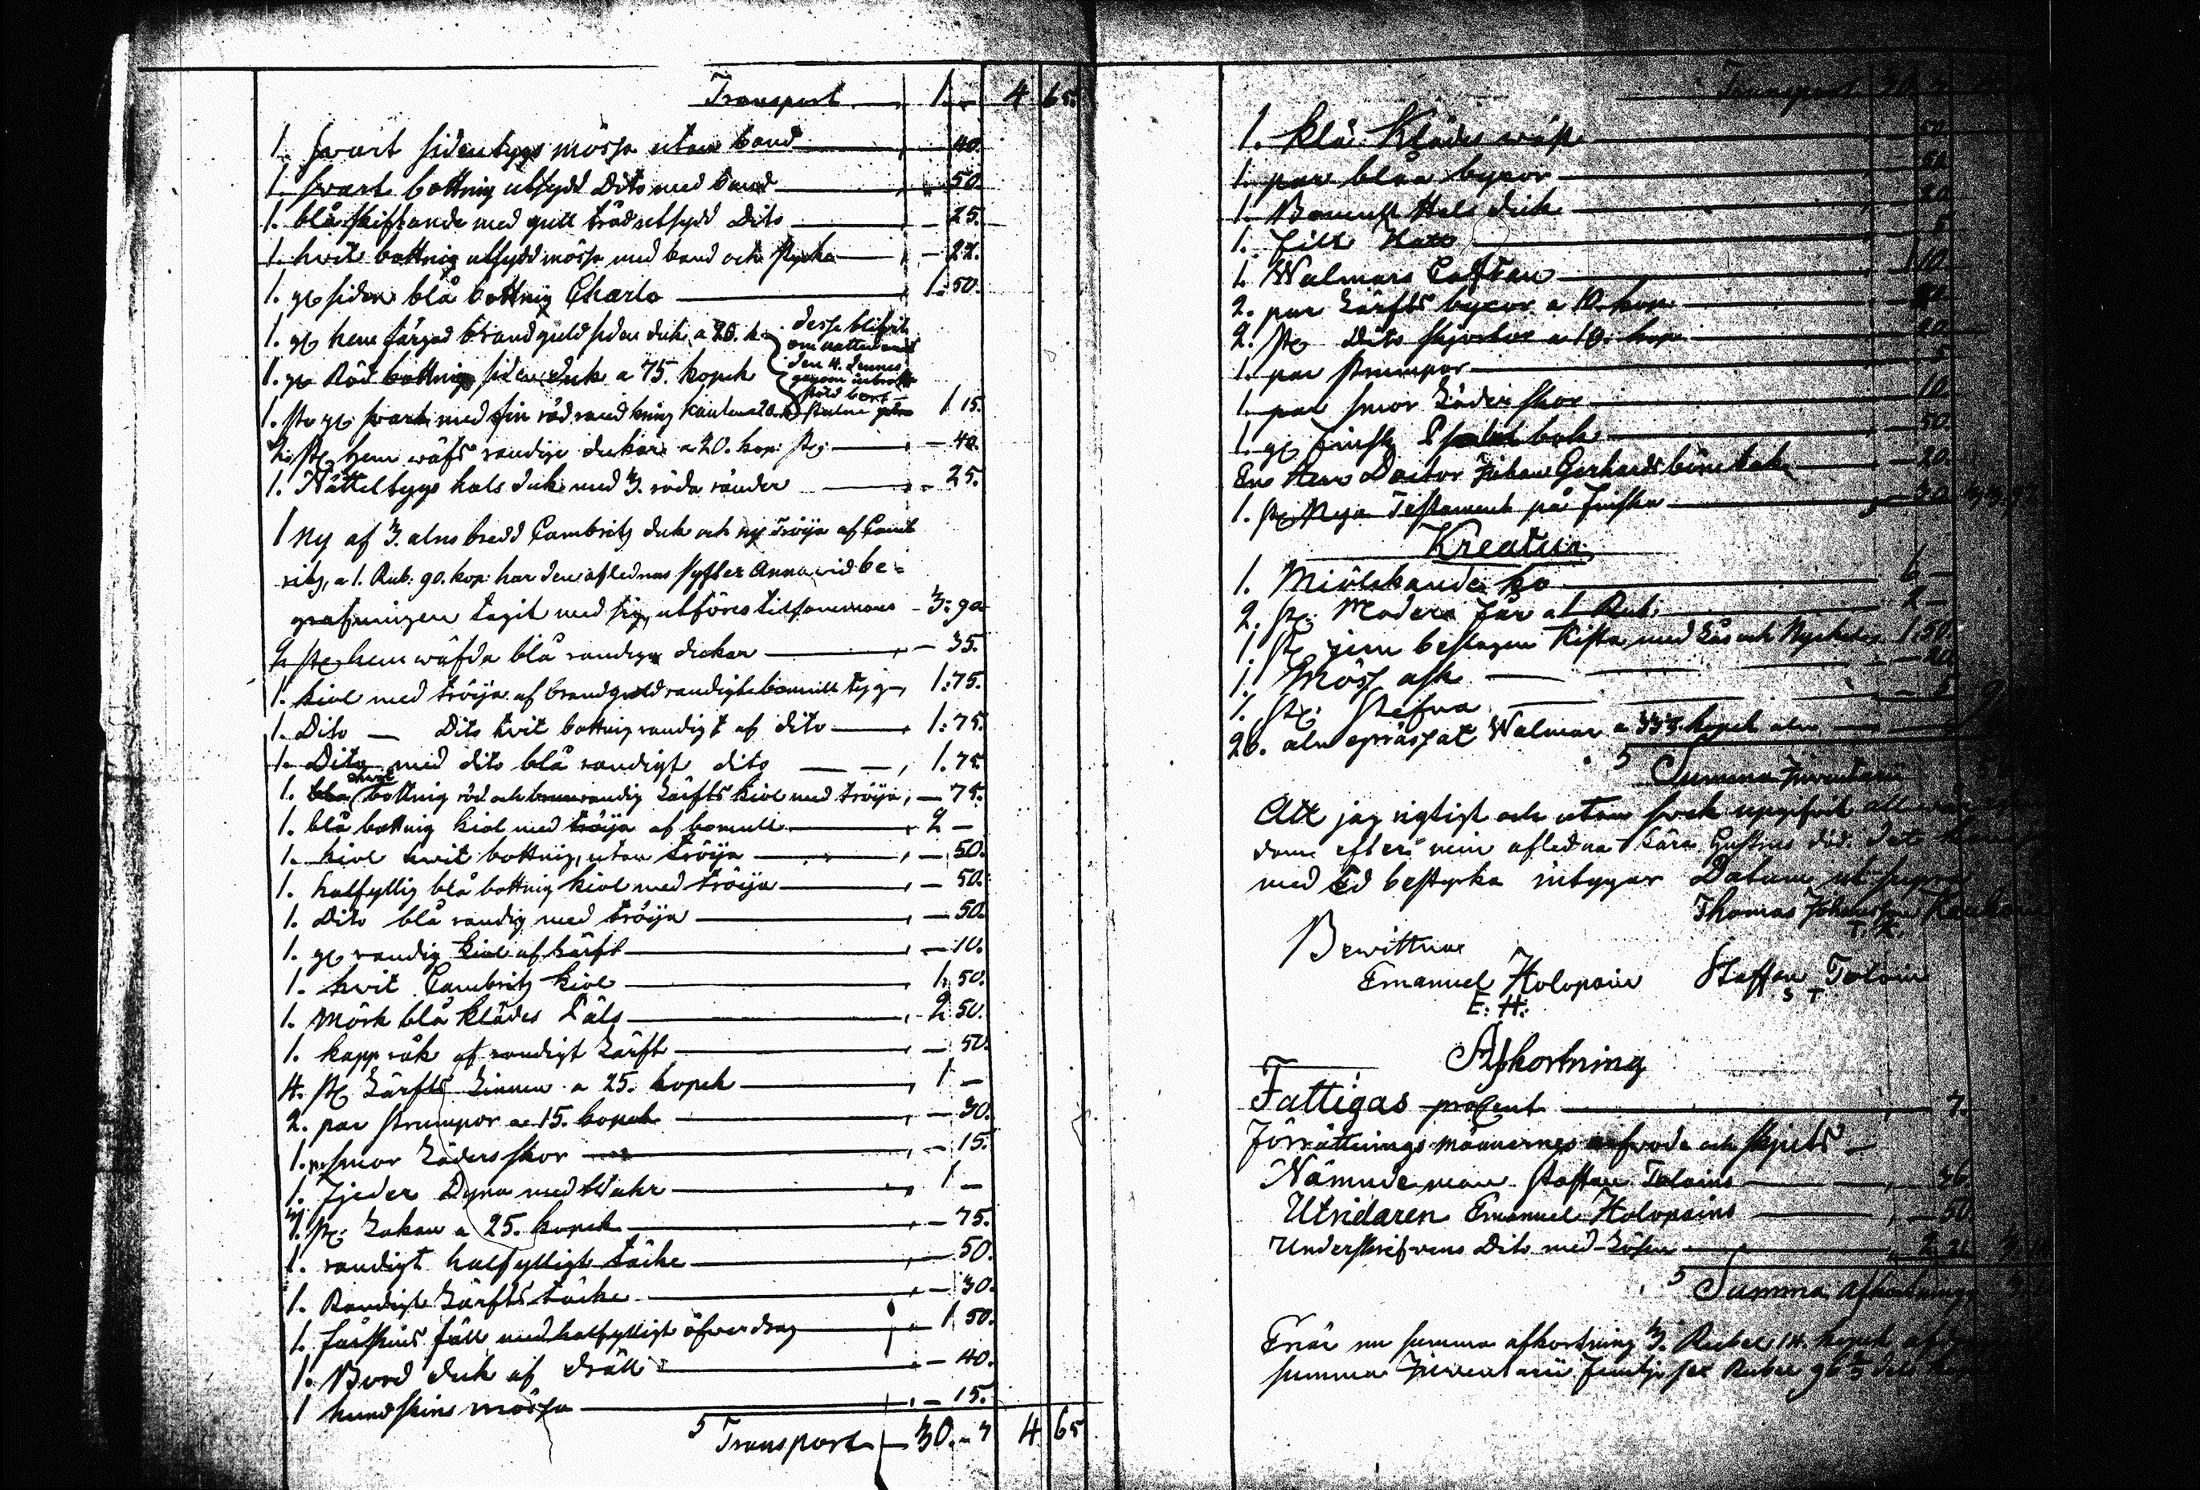 Transport 1. – 4 65.
1. svart sidentygs mössa utan band – 40.
1. svart bottnig utsydd Dito med band – 50.
1. blå skiftande med gull tråd utsydd Dito – 25.
1. hvit bottnig utsydd mössa med band och stycke – 22.
1. gl siden blå bottnig Charlo 1. 50.
1. gl hem färgad brandguld siden duk a 20. k. desse blifvit
om natten emot
1. gl Röd bottnig siden duk a 75. kopek den 4. dennes
genom inbrott
stuld bort
1. st gl svart med fin röd rand kring kanterna 1 15.
2. st hem wäfs randige dukar a 20. kop: st: – 40.
1. Nättelstygs halsduk med 3. röda ränder – 25.
1 Ny af 3. alns bredd Cambritz duk och ny Tröija af Camb
ritz, a 1. Rub: 90. kop: har den aflednas syster Anna vid be-
grafningen tagit med sig, utföres tilsammans – 3: 90
2 st hemwäfda blå randiga dukar – 35.
1. kiol med tröija af brandguld randigt bomull tyg 1: 75.
1. Dito – Dito hvit bottnig randigt af dito 1: 75.
1. Dito med dito blå randigt dito 1. 75.
1. blå hvit bottnig röd och brunrandig Lärfts kiol med tröija, – 75.
1. blå bottnig kiol med tröija af bomull 2 –
1. kiol hvit bottnig, utan tröija – 50.
1. halfyllig blå bottnig kiol med tröija – 50.
1. Dito blå randig med tröija – 50.
1. gl randig kiol af Lärft – 10.
1. hvit Cambritz kiol 1. 50.
1. Mörk blå klädes Päls 2 50.
1. kapp råk af randigt Lärft – 50.
4. st Lärfts Linnen a 25. kopek 1 –
2. par strumpor a 15. kopek – 30.
1. pr smor Läders skor – 15.
1. fjeder Dyna med Wahr 1 –
3. st: Lakan a 25. kopek – 75.
1. randigt halfylligt täcke – 50.
1. Randigt Lärfts täcke – 30.
1. fårskins fäll med halfylligt öfverdrag 1 50.
1. Bord duk af dräll – 40.
1 hundskins mössa – 15.
Transport 30. – 7 4 65
Transport 30
1. blå Klädes wäst 50
1. par blåa byxor 50
1. Bomulls Hals duk 20
1. filt Hatt 5
1. Walmars Caftan 1 10.
2. par Lärfts byxor a 10. kop:
2. st Dito skjortor a 10: kop: 20.
1. par strumpor 5
1. par smor Läder skor 10
1. gl Finsk Psalm bok 50.
En Herr Doctor Johan Gerhards böne bok – 20.
1. st Nya Testament på finska – 30
Kreatur
1. Miölkande ko 6 –
2. st: Moders får a 1 Rub: 2 –
1 st jern beslagen Kista med Lås och Nyckel 1. 50.
1. Möss ask – 20
1. st: – 5
20. aln opråssat Walmar a 33⅓ kopek aln
Summa Inventarii
Att jag rigtigt och utan svek uppgifvit all
dom efter min afledna kära Hustrus död. det
med Ed bestyrka intygar Datum ut supra
Thomas Johansson
T. K.
Bewittna
Emanuel Holopain Staffan Tolvain
E: H: S T
Afkortning
Fattigas procent 7.
Förrättnings männernes arfvode och skjuts –
Nämndeman Staffan Tolvains 36.
Utridaren Emanuel Holopains – 50.
Underskrifvens Dito med Lösen 2 21
Summa Afkortning 3
Från nu summa afkortning 3. Rubel 14. kopek
summa Inventarii femtijo sex Rubel